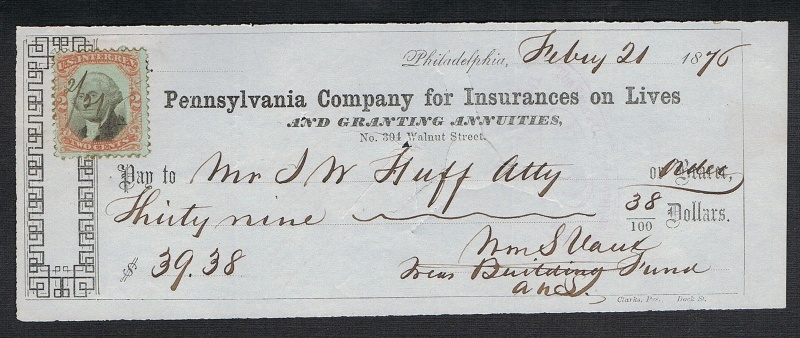 Philadelphia, Febry 21 1876
U.S. INTER. REV.
2/21
TWO CENTS
Pennsylvania Company for Insurances on Lives
AND GRANTING ANNUITIES,
No. 304 Walnut Street.
Pay to Mr J W Huff Atty or Bearer, Order
Thirty nine 38/100 Dollars.
$ 39.38
Wm S Vaux
Treas Building Fund
A N S
Clarke, Pr. Dock St.